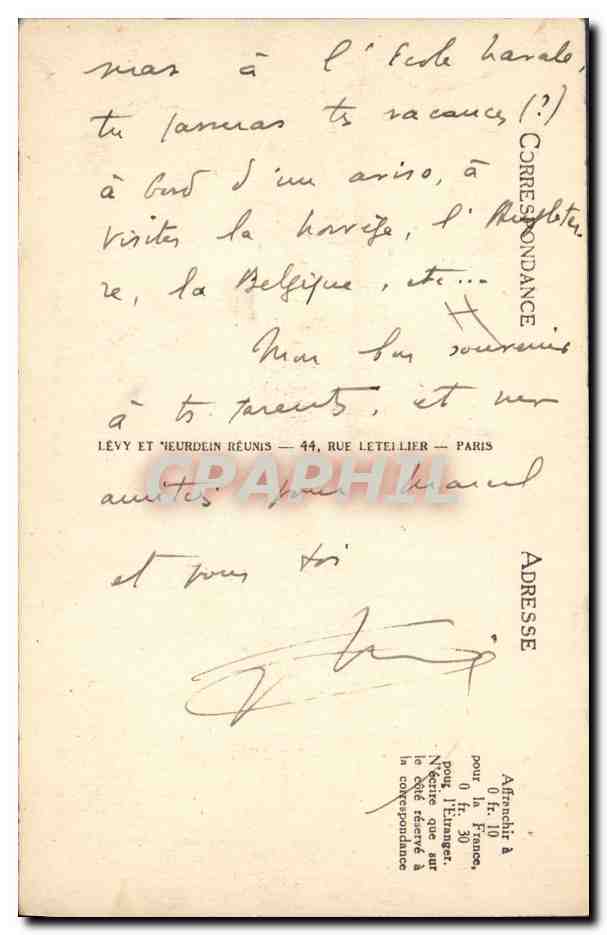 à l'Ecole navale,
tu passeras tes vacances (?)
à bord d'un aviso, à
visiter la Norvège, l'Angleter
re, la Belgique, etc...
Mon bon souvenir
à ts parents, et mes
LÉVY ET NEURDEIN RÉUNIS — 44, RUE LETELLIER — PARIS
CPAPHIL
amitiés pour Marcel
et pour toi
CORRESPONDANCE
ADRESSE
Affranchir à
0 fr. 10
pour la France,
0 fr. 30
pour l'Etranger.
N'écrire que sur
le côté réservé à
la correspondance